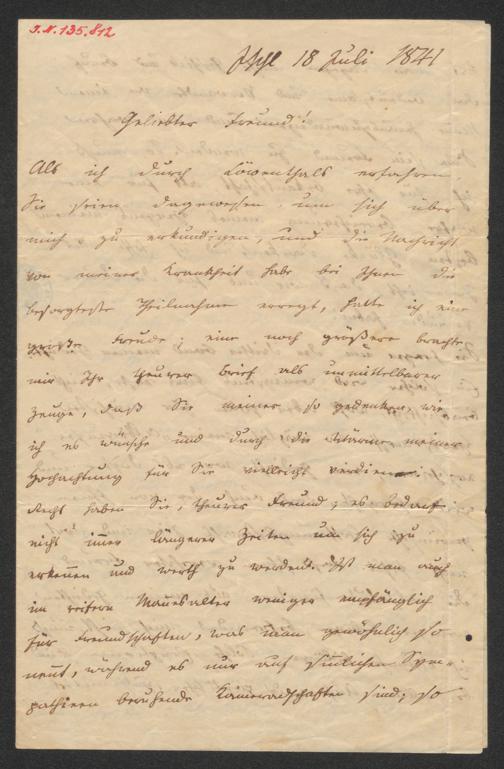 J.N. 135.812
Ischl 18 Juli 1841
Geliebter Freund!
Als ich durch Löwenthals erfahren,
Sie seien dagewesen, um sich über
mich zu erkundigen, und die Nachricht
von meiner Krankheit habe bei Ihnen die
besorgteste Theilnahme erregt, hatte ich eine
große Freude; eine noch größere brachte
mir Ihr theurer Brief als unmittelbarer
Zeuge, daß Sie meiner so gedenken, wie
ich es wünsche und durch die Wärme meiner
Hochachtung für Sie vielleicht verdiene.
Recht haben Sie, theurer Freund, es bedarf
nicht immer längerer Zeiten um sich zu
erkennen und werth zu werden. Ist man auch
im reifern Mannesalter weniger empfänglich
für Freundschaften, was man gewöhnlich so
nennt, während es nur auf sinnlichen Sym-
pathieen beruhende Kameradschaften sind; so